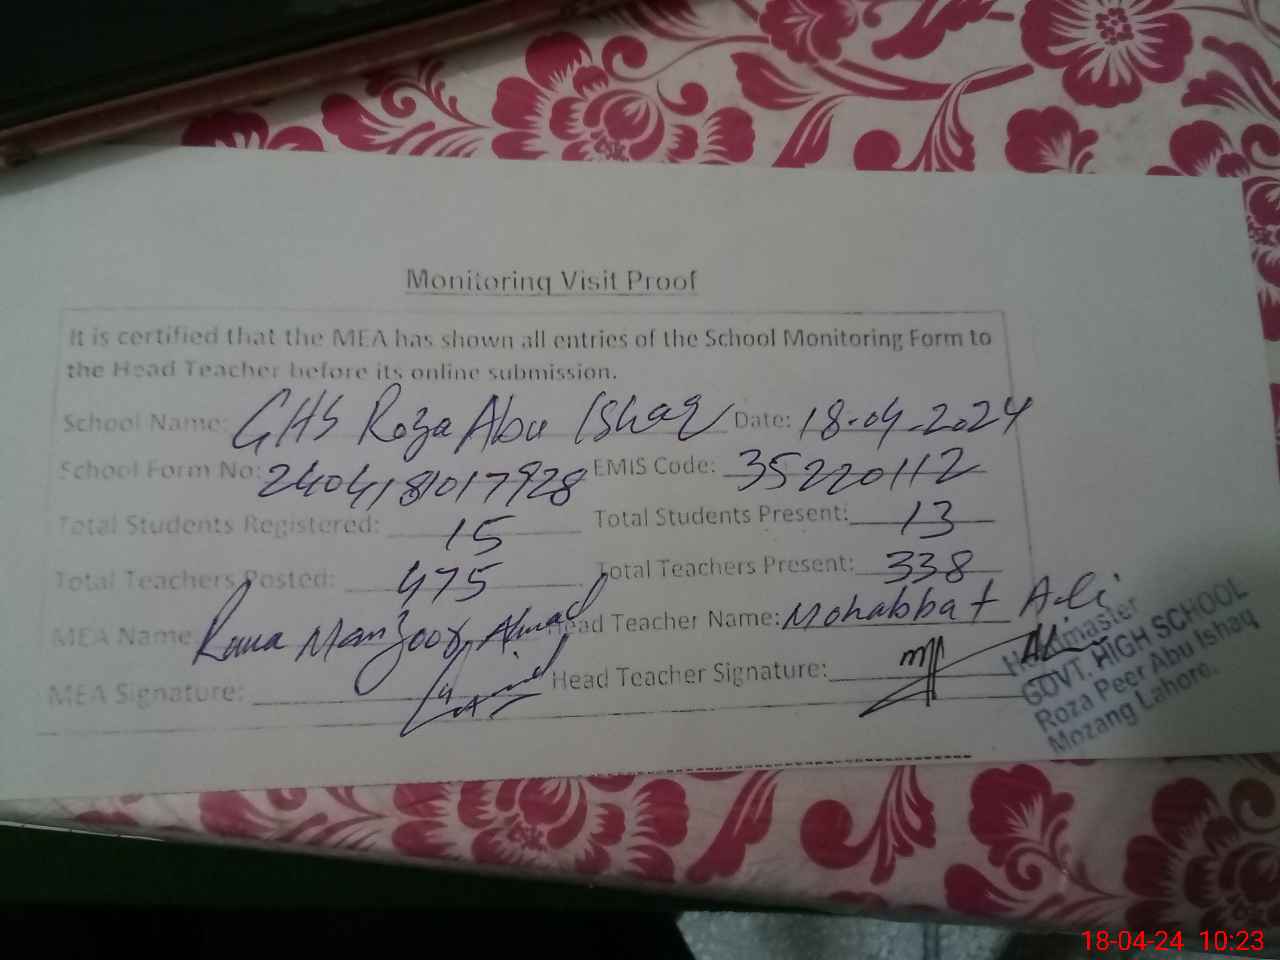 Monitoring Visit Proof
It is certified that the MEA has shown all entries of the School Monitoring Form to
the Head Teacher before its online submission.
School Name: GHS Roza Abu Ishaq Date: 18-04-2024
School Form No: 2404181017928 EMIS Code: 35220112
Total Students Registered: 15 Total Students Present: 13
Total Teachers Posted: 475 Total Teachers Present: 338
MEA Name: Rana Manzoor Ahmad Head Teacher Name: Mohabbat Ali
MEA Signature: Head Teacher Signature:
Headmaster
GOVT. HIGH SCHOOL
Roza Peer Abu Ishaq
Mozang Lahore.
18-04-24 10:23